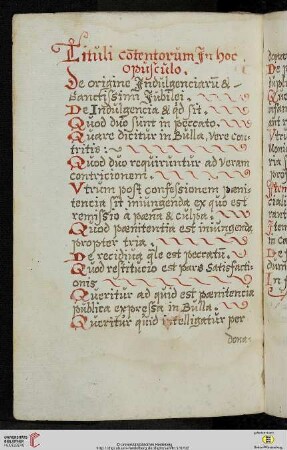 Tituli cõtentorum In hoc
opusculo.
De origine Indulgenciarũ &
Sanctissimi Iubilei.
De Indulgencia & qd sit.
Quod duo sunt in peccato.
Quare dicitur in Bulla, Vere con
tritis:
Quod duo requiruntur ad veram
contricionem.
Vtrum post confessionem pæni
tencia sit iniungenda ex quo est
remissio a pæna & culpa.
Quod pænitentia est iniungenda
propter tria.
De recidiua qle est peccatũ.
Quod restitucio est pars Satisfacti-
onis
Queritur ad quid est pænitencia
publica expressa in Bulla.
Queritur quid intelligatur per
dona:
UNIVERSITÄTS-
BIBLIOTHEK
HEIDELBERG
© Universitätsbibliothek Heidelberg
Baden-Württemberg